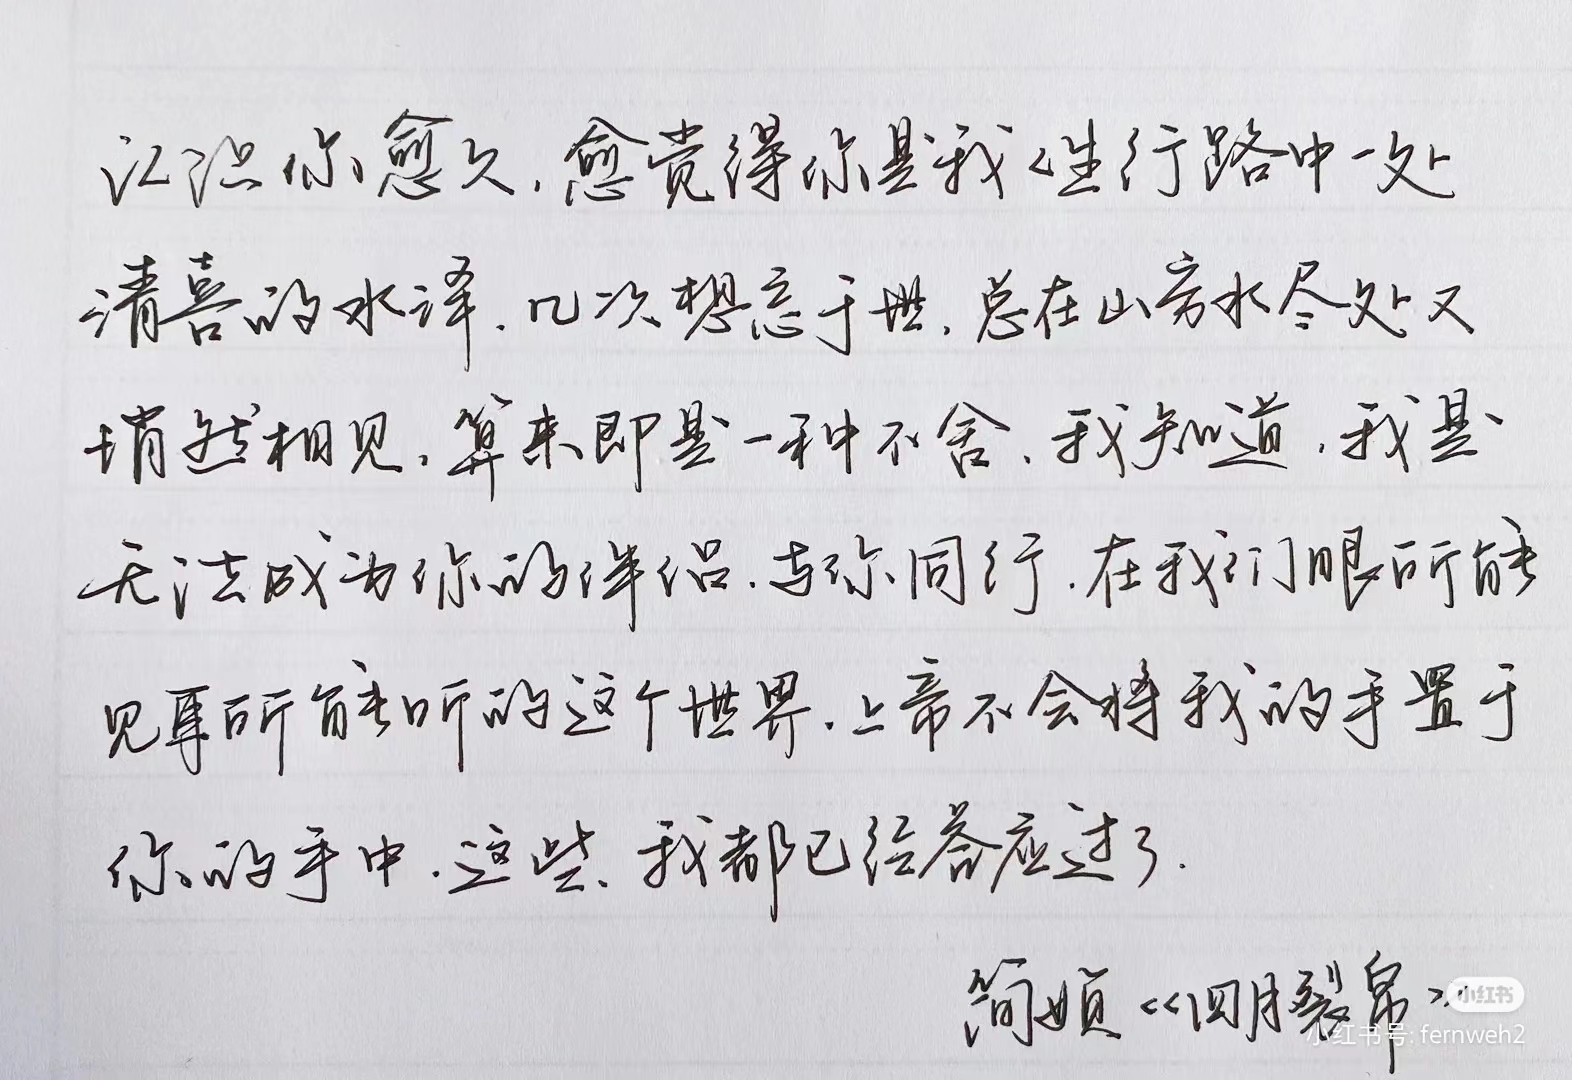 认识你愈久,愈觉得你是我人生行路中一处
清喜的水泽.几次想忘于世,总在山穷水尽处又
悄然相见,算来即是一种不舍.我知道,我是
无法成为你的伴侣.与你同行.在我们眼所能
见耳所能听的这个世界.上帝不会将我的手置于
你的手中.这些、我都已经答应过了.
简媜《四月裂帛》
小红书
小红书号: fernweh2